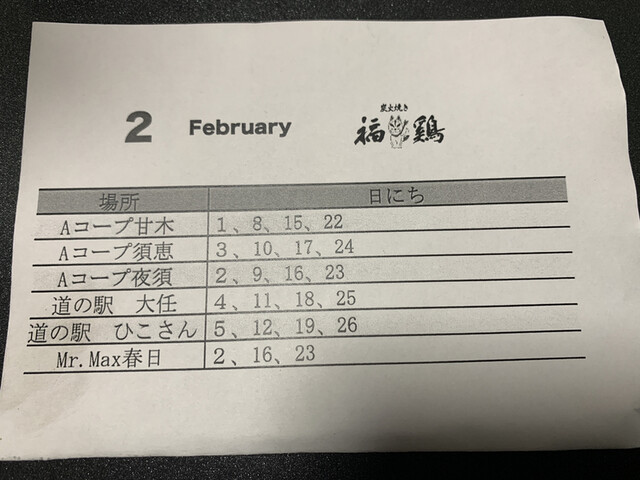 2 February
炭火焼き
福鶏
場所 日にち
Aコープ甘木 1、8、15、22
Aコープ須恵 3、10、17、24
Aコープ夜須 2、9、16、23
道の駅 大任 4、11、18、25
道の駅 ひこさん 5、12、19、26
Mr.Max春日 2、16、23